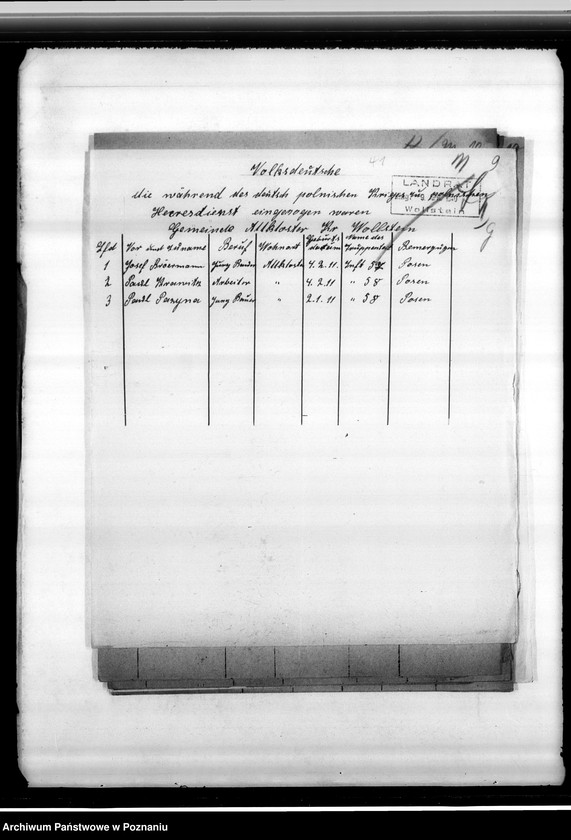 41
M 9
Volksdeutsche
LANDRAT
die während des deutsch polnischen Kriges zu polnischen
Wollstein
Heeresdienst eingezogen waren
Gemeinde Altkloster Kr Wollstein
Lfd Vor und Zuname Beruf Wohnort Geburts datum Name des Truppenteil Bemerzugen
1 Josef Brösemann Jung Bauer Altkloster 4.2.11. Inft 57 Posen
2 Paul Krawitz Arbeiter " 4.2.11 " 58 Posen
3 Paul Pazyna Jung Bauer " 2.1.11 " 58 Posen
Archiwum Państwowe w Poznaniu